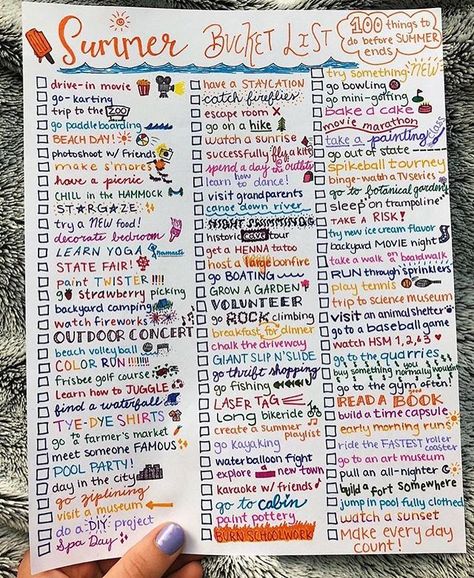 Summer BUCKET LIST
100 things to do before SUMMER ends
drive-in movie
go-karting
trip to the ZOO
go paddleboarding
BEACH DAY!
photoshoot w/ friends
make s'mores
have a picnic
CHILL in the HAMMOCK
STARGAZE
try a NEW food!
decorate bedroom
LEARN YOGA namaste
STATE FAIR!
paint TWISTER!!!!
go strawberry picking
backyard camping
watch fireworks
OUTDOOR CONCERT
beach volleyball
COLOR RUN!!!!!
frisbee golf course!
learn how to JUGGLE
find a waterfall
TYE-DYE SHIRTS
go to farmer's market
meet someone FAMOUS
POOL PARTY!
day in the city
go ziplining
visit a museum
do a DIY project
Spa Day
have a STAYCATION
catch fireflies
escape room
go on a hike
watch a sunrise
successfully fly a kite
spend a day outside
learn to dance!
visit grandparents
canoe down river
NIGHT SWIMMING
historic tour
get a HENNA tatoo
host a large bonfire
go BOATING
GROW A GARDEN
VOLUNTEER
go ROCK climbing
breakfast for dinner
chalk the driveway
GIANT SLIP N'SLIDE
go thrift shopping
go fishing
LASER TAG
long bikeride
create a summer playlist
go kayaking
waterballoon fight
explore a new town
karaoke w/ friends
go to cabin
paint pottery
BURN SCHOOLWORK
try something NEW
go bowling
go mini-golfing
bake a cake
movie marathon
take a painting class
go out of state
spikeball tourney
binge-watch a TV series
go to botanical gardens
sleep on trampoline
TAKE A RISK!
try new ice cream flavor
backyard MOVIE night
take a walk on boardwalk
RUN through sprinklers
play tennis
trip to science museum
visit an animal shelter
go to a baseball game
watch HSM 1, 2, & 3
go to the quarries
buy something you normally wouldn't
go to the gym often!
READ A BOOK
build a time capsule
early morning runs
ride the FASTEST roller coaster
go to an art museum
pull an all-nighter
build a fort somewhere
jump in pool fully clothed
watch a sunset
Make every day count!